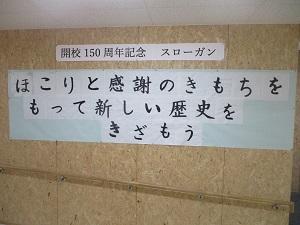 開校150周年記念　スローガン
ほこりと感謝のきもちを
もって新しい歴史を
きざもう